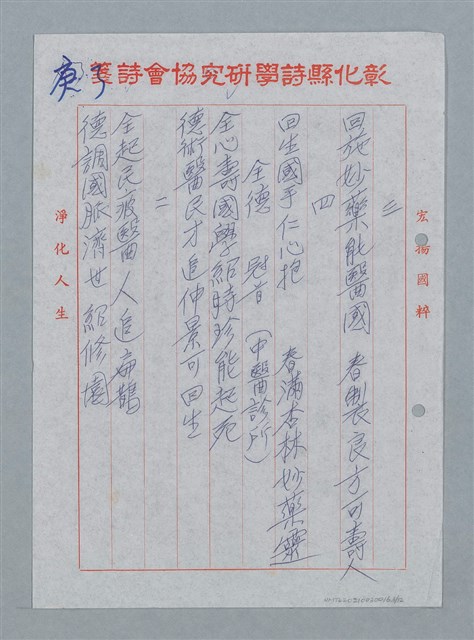 彰化縣詩學研究協會詩箋
宏揚國粹
三
回施妙藥能醫國 春製良方可壽人
四
回生國手仁心抱 春滿杏林妙藥靈
全德 冠首 (中醫診所)
全心壽國學紹時珍能起死
德術醫民才追仲景可回生
二
全起民疲醫人追扁鵲
德調國脈濟世紹修園
淨化人生